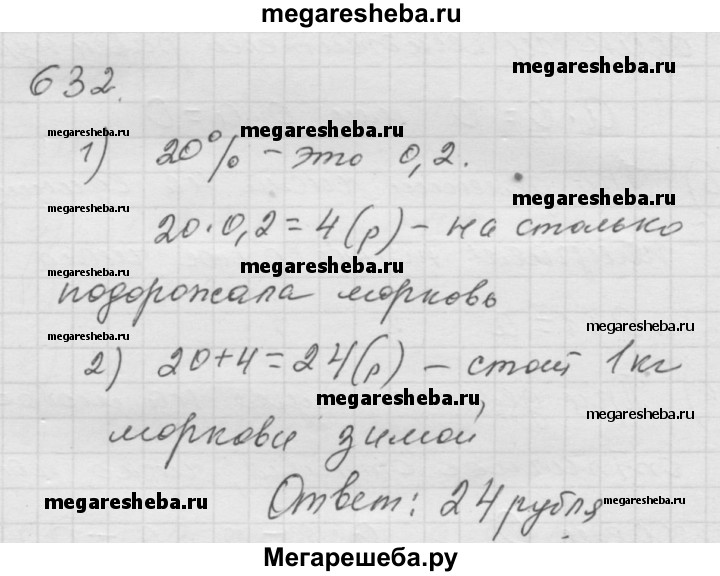 megaresheba.ru
632.
megaresheba.ru
megaresheba.ru
megaresheba.ru
1) 20% – это 0,2.
megaresheba.ru
megaresheba.ru
20·0,2=4(р) – на столько
megaresheba.ru
megaresheba.ru
подорожала морковь
megaresheba.ru
megaresheba.ru
2) 20+4=24(р) – стоит 1кг
megaresheba.ru
megaresheba.ru
моркови зимой
megaresheba.ru
megaresheba.ru
Ответ: 24 рубля.
Мегарешеба.ру